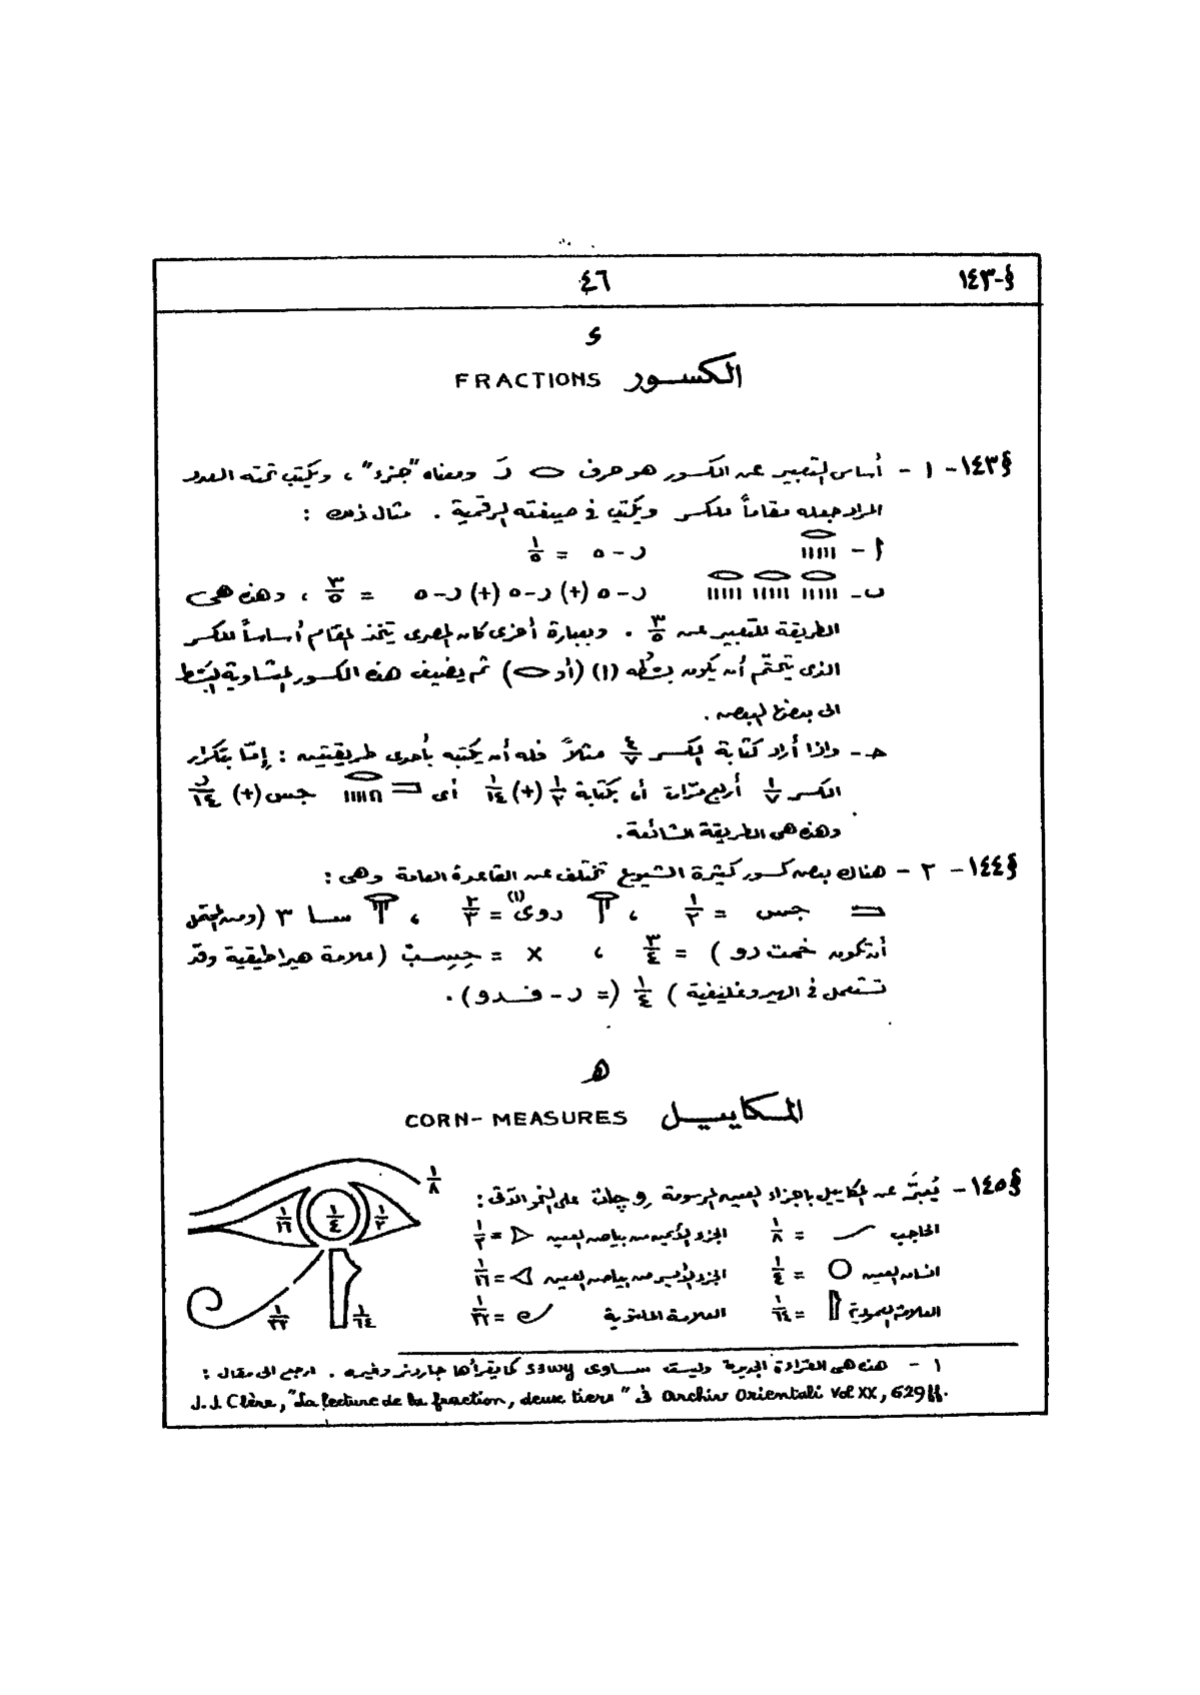 §-١٤٣ ٤٦
ء
الكسور FRACTIONS
§١٤٣- ١ - أساس التعبير عن الكسور هو حرف رَ ومعناه "جزء" ، ويكتب تحته العدد
المراد جعله مقاماً للكسر ويكتب في صيغته الرقمية . مثال ذلك :
أ - ر-٥ = ١/٥
ب- ر-٥ (+) ر-٥ (+) ر-٥ = ٣/٥ ، وهذه هي
الطريقة للتعبير عن ٣/٥ . وبعبارة أخرى كان المصرى يتخذ المقام أساساً للكسر
الذى يتحتّم أن يكون بسْطُه (١) (أو ) ثم يضيف هذه الكسور المتساوية البَسْط
الى بعضها البعض .
حـ- واذا أراد كتابة الكسر ٤/٧ مثلاً فله أن يكتبه بأحدى طريقتين : إمّا بتكرار
الكسر ١/٧ أربع مرّات أو بكتابة ١/٢ (+) ١/١٤ أى جس (+) ر/١٤
وهذه هى الطريقة الشائعة .
§١٤٤- ٢ - هناك بعض كسور كثيرة الشيوع تختلف عن القاعدة العامة وهى :
جس = ١/٢ ، روى(١) = ٢/٣ ، سا ٣ (ومن المحتمل
أن تكون خمت رو ) = ٣/٤ ، x = حِسِبْ (علامة هيراطيقية وقد
تستعمل فى الهيروغليفية ) ١/٤ (= ر - فدو ) .
هـ
المكاييل CORN-MEASURES
§١٤٥- يُعبَّر عن المكاييل باجزاء العين المرسومة وچات على النحو الآتى :
الحاجب = ١/٨ الجزء الأيمن من بياض العين = ١/٢
انسان العين = ١/٤ الجزء الأيسر من بياض العين = ١/١٦
العلامة العمودية = ١/٦٤ العلامة الملتوية = ١/٣٢
١/٨
١/١٦ ١/٤ ١/٢
١/٣٢ ١/٦٤
١ - هذه هى القراءة الجديدة وليست ساوى s3wy كما يقرأها جاردنر وغيره . ارجع الى مقال :
J.J. Clère, "La lecture de la fraction, deux tiers" فى Archiv Orientali Vol XX, 629 ff.